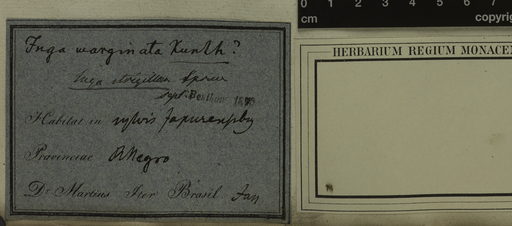 Inga marginata Kunth?
Inga strigillosa Spruce
Bentham
Habitat in sylvis Japurensibus
Provinciae R Negro
Dr. Martius Iter Brasil. Jan
0 1 2 3 4 5 6 7
cm
copyrig
HERBARIUM REGIUM MONACEN